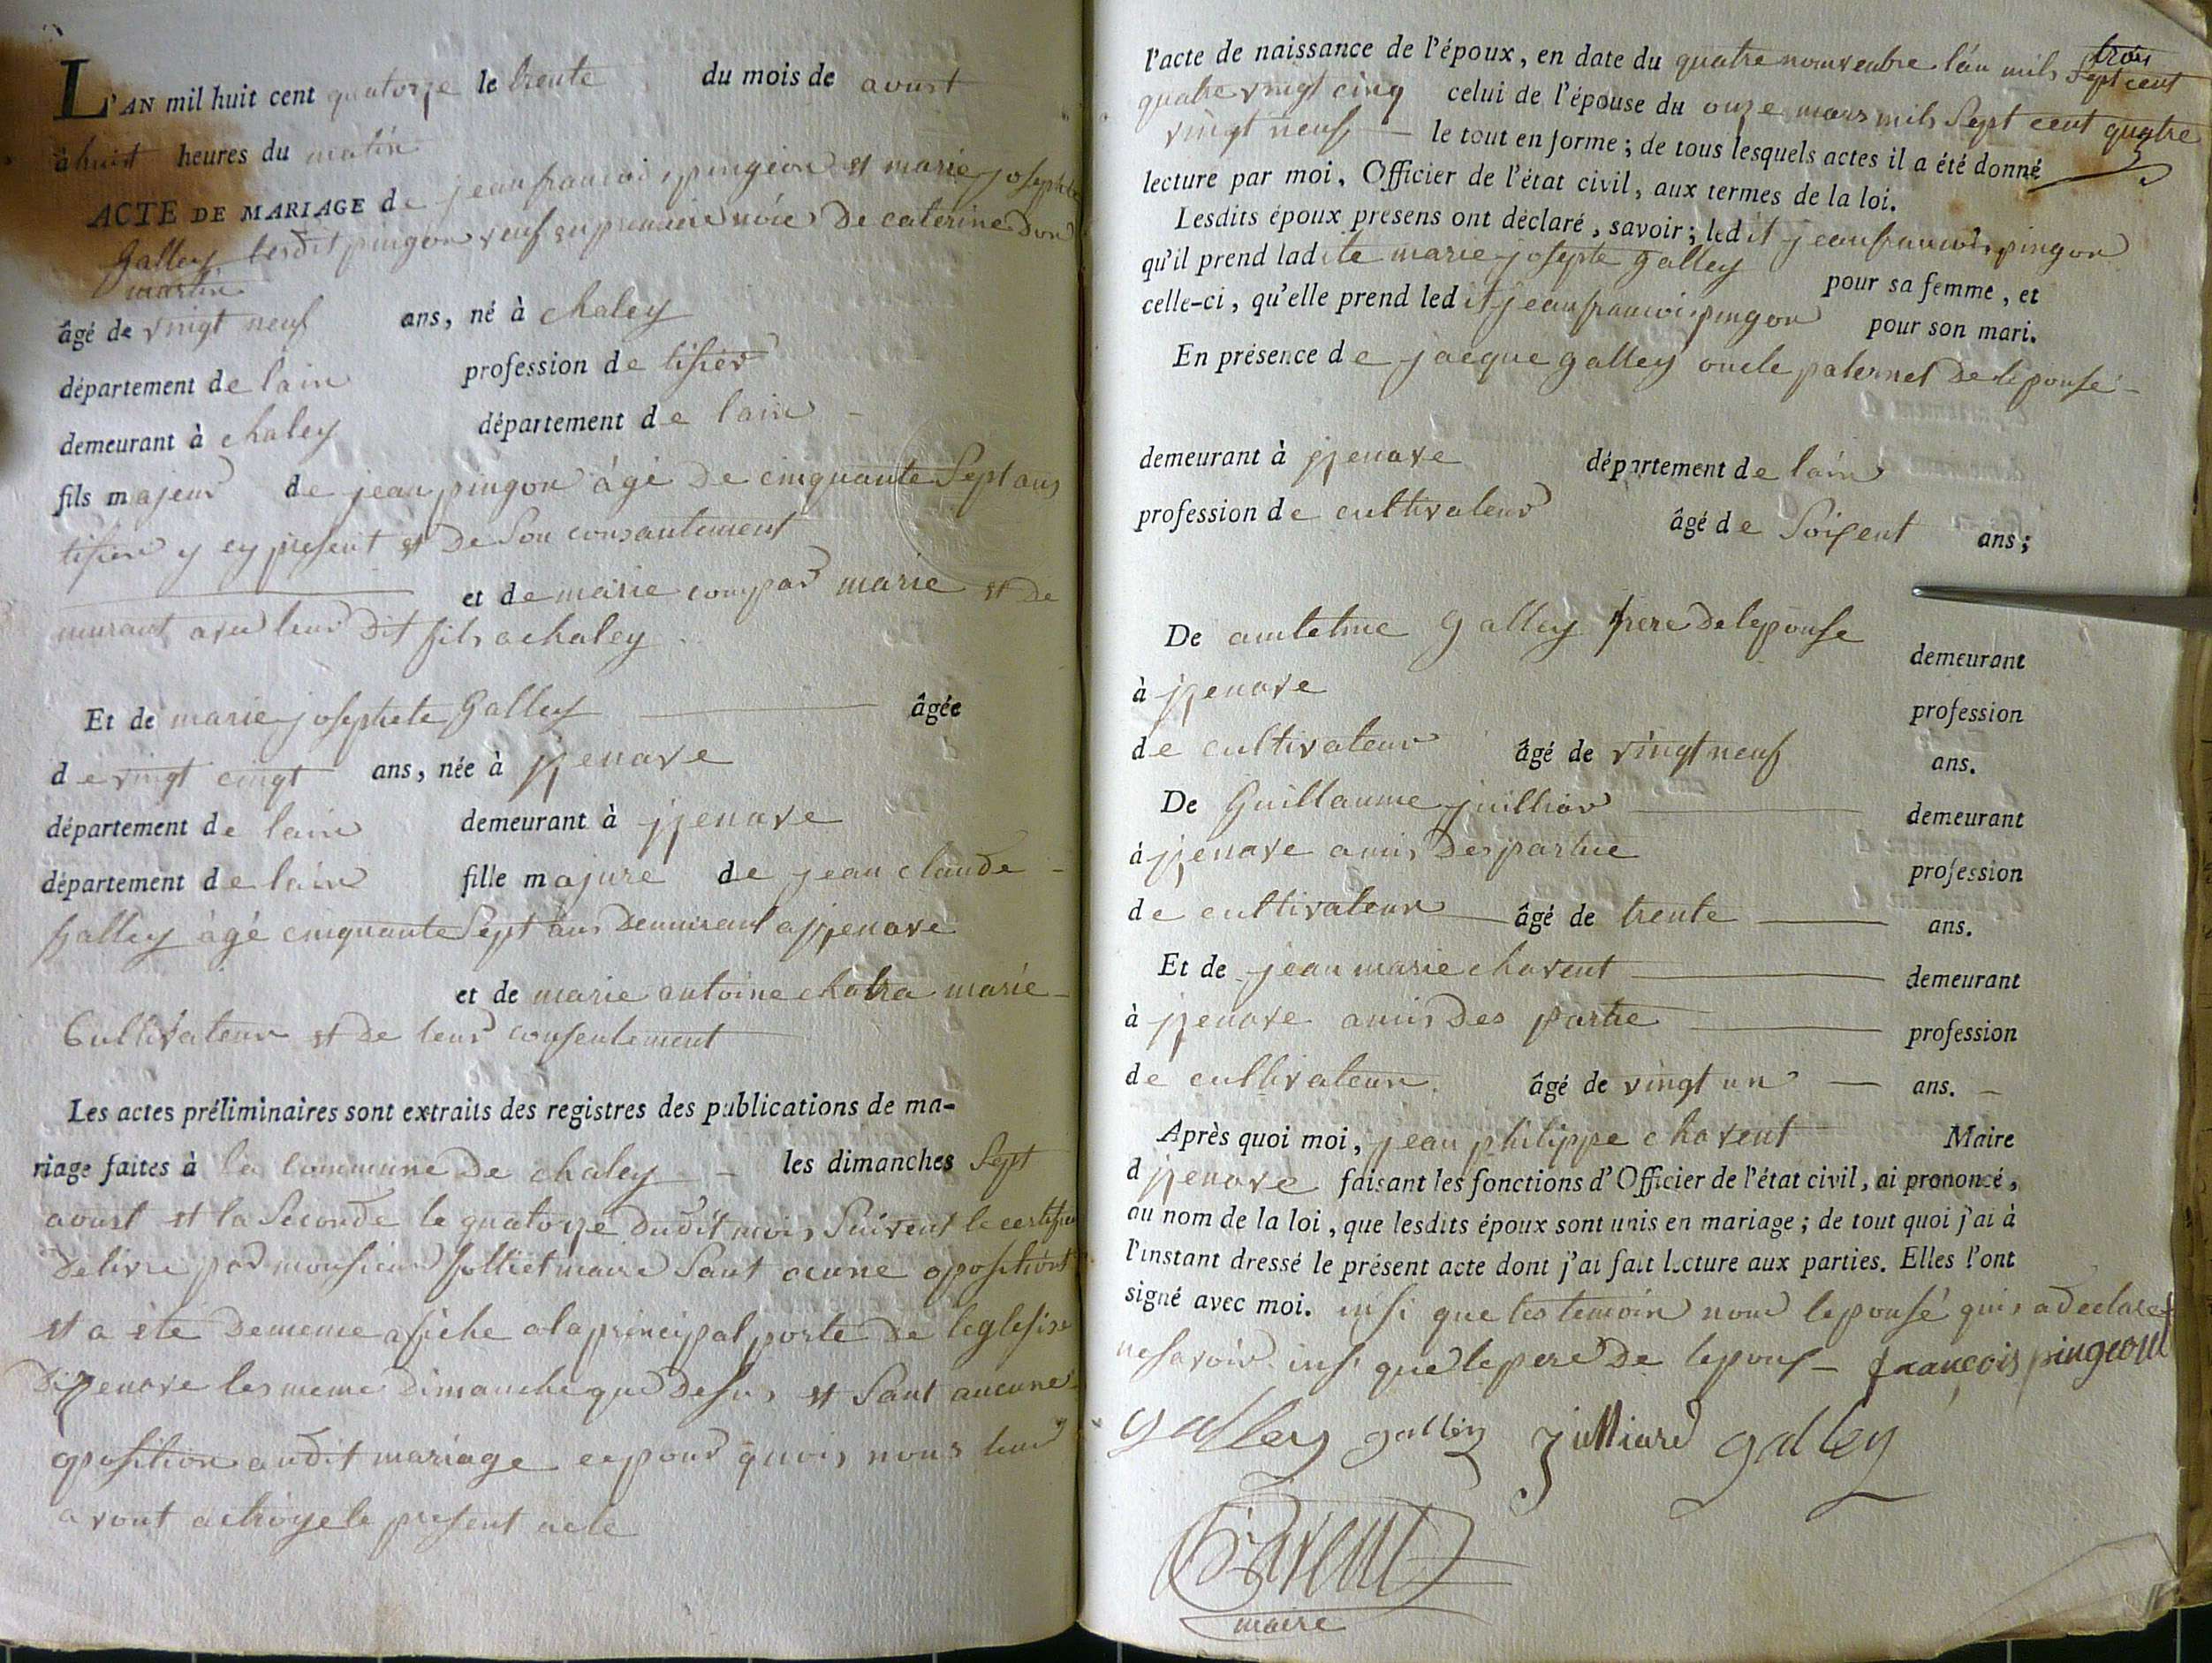 L'AN mil huit cent quatorze le trente du mois de avust
à huit heures du matin
ACTE DE MARIAGE de jean francois pingeon et marie josephte
galley lesdit pingon veuf en premiere nóce De caterine Don
martin
âgé de vingt neuf ans, né à chaley
département de lain profession de tisier
demeurant à chaley département de lain
fils majeur de jean pingon âgé De cinquante Sept ans
tisier y ey present et De Son consantement
et de marie compar marie et De
murant avec leur Dit fils a chaley
Et de marie josephete Galley âgée
de vingt cingt ans, née à jjenave
département de lain demeurant à jjenave
département de lain fille majure de jean claude
Galley âgé cinquante Sept ans Demeurent a jjenave
et de marie antoine chatra marié
Cultivateur et De leur consentement
Les actes préliminaires sont extraits des registres des publications de ma-
riage faites à la Commune De chaley les dimanches Sept
avust et la Seconde le quatorze Dudit mois Suivent le certifica
Delivre par monsieur folliet maire Sant ocune oposition
et a été Dememe afiche a la principal porte De leglesise
Dijjenave les meme Dimanche que Desus et Sant aucune
oposition audit mariage ey pour quois nous leur
avont actroye le present acte
l'acte de naissance de l'époux, en date du quatre nouvenbre l'an mils Sept cent
quatre vingt cinq celui de l'épouse du onze mars mils Sept cent quatre
vingt neuf le tout en forme; de tous lesquels actes il a été donné
lecture par moi, Officier de l'état civil, aux termes de la loi.
Lesdits époux présens ont déclaré, savoir; ledit jean francois pingon
qu'il prend ladite marie josepte galley pour sa femme, et
celle-ci, qu'elle prend ledit jean francois pingon pour son mari.
En présence de jacque galley oncle paternel De lepouse
demeurant à jjenave département de lain
profession de cultivateur âgé de Soixent ans;
De amtelme Galley frere De lepouse demeurant
à jjenave profession
de cultivateur âgé de vingt neuf ans.
De Guillaume juilliar demeurant
à jjenave amis Des partie profession
de cultivateur âgé de trente ans.
Et de jean marie chavent demeurant
à jjenave amis Des partie profession
de cultivateur âgé de vingt un ans.
Après quoi moi, jean philippe chavent Maire
d jjenave faisant les fonctions d'Officier de l'état civil, ai prononcé,
au nom de la loi, que lesdits époux sont unis en mariage; de tout quoi j'ai à
l'instant dressé le présent acte dont j'ai fait lecture aux parties. Elles l'ont
signé avec moi. insi que les temoin nom lepousé quis a declare
ne savoir insi que le pere De lepous françois pingeon
galley galley juilliard galley
Chavent
maire